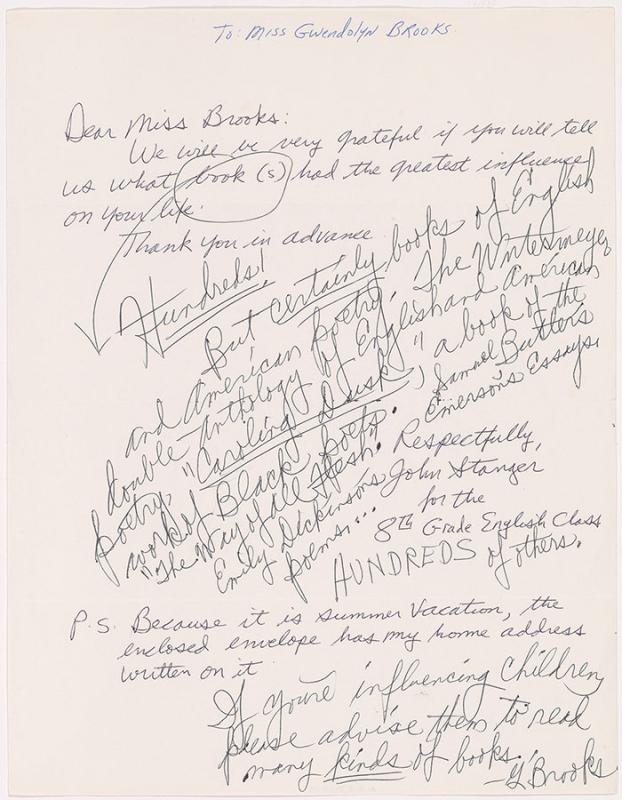 To: Miss Gwendolyn Brooks
Dear Miss Brooks:
We will be very grateful if you will tell
us what book(s) had the greatest influence
on your life.
Thank you in advance
Hundreds!
But certainly books of English
and American poetry, The Wintermeyer
double anthology of English and American
poetry, "Caroling Dusk", a book of the
work of Black poets. Samuel Butler's
"The Way of all Flesh. Emerson's Essays.
Emily Dickinson's
poems....
Respectfully,
John Stanger
for the
8th Grade English Class
HUNDREDS of others.
P.S. Because it is summer vacation, the
enclosed envelope has my home address
written on it
If you're influencing children,
please advise them to read
many kinds of books.
—G. Brooks